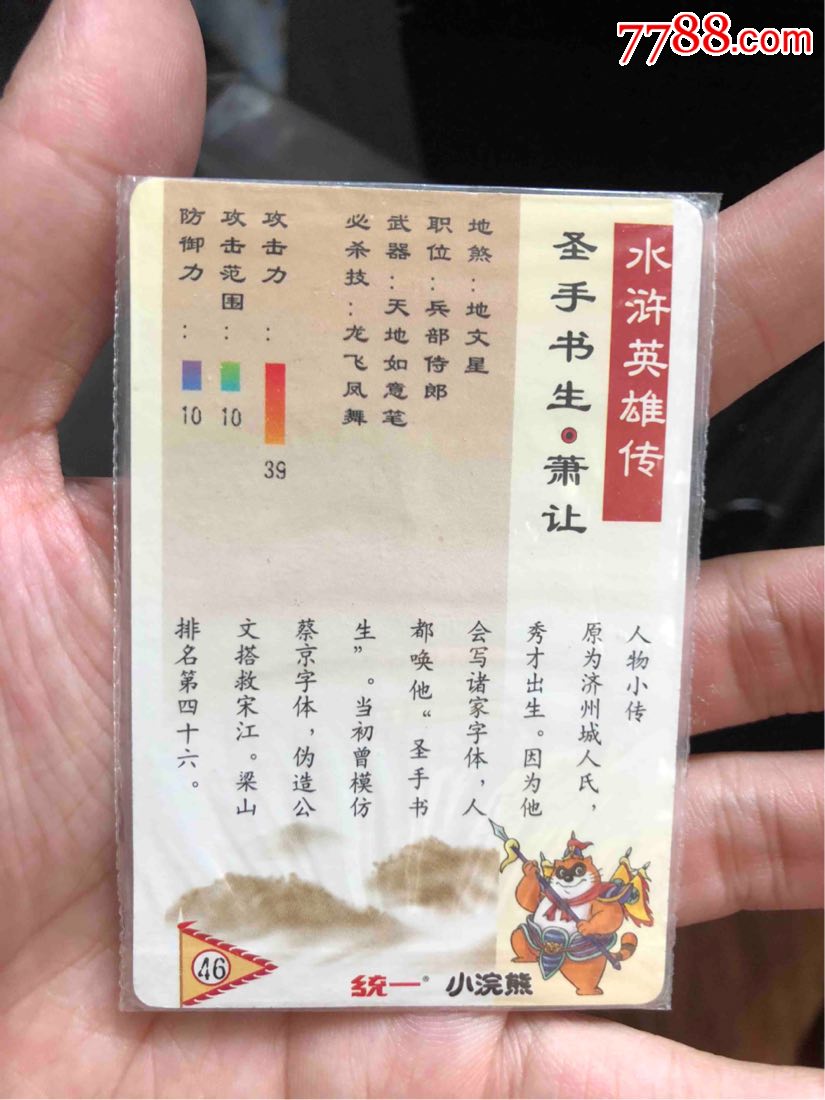 7788.com
水浒英雄传
圣手书生·萧让
地煞：地文星
职位：兵部侍郎
武器：天地如意笔
必杀技：龙飞凤舞
攻击力：39
攻击范围：10
防御力：10
人物小传
原为济州城人氏，
秀才出生。因为他
会写诸家字体，人
都唤他“圣手书
生”。当初曾模仿
蔡京字体，伪造公
文搭救宋江。梁山
排名第四十六。
46
统一® 小浣熊